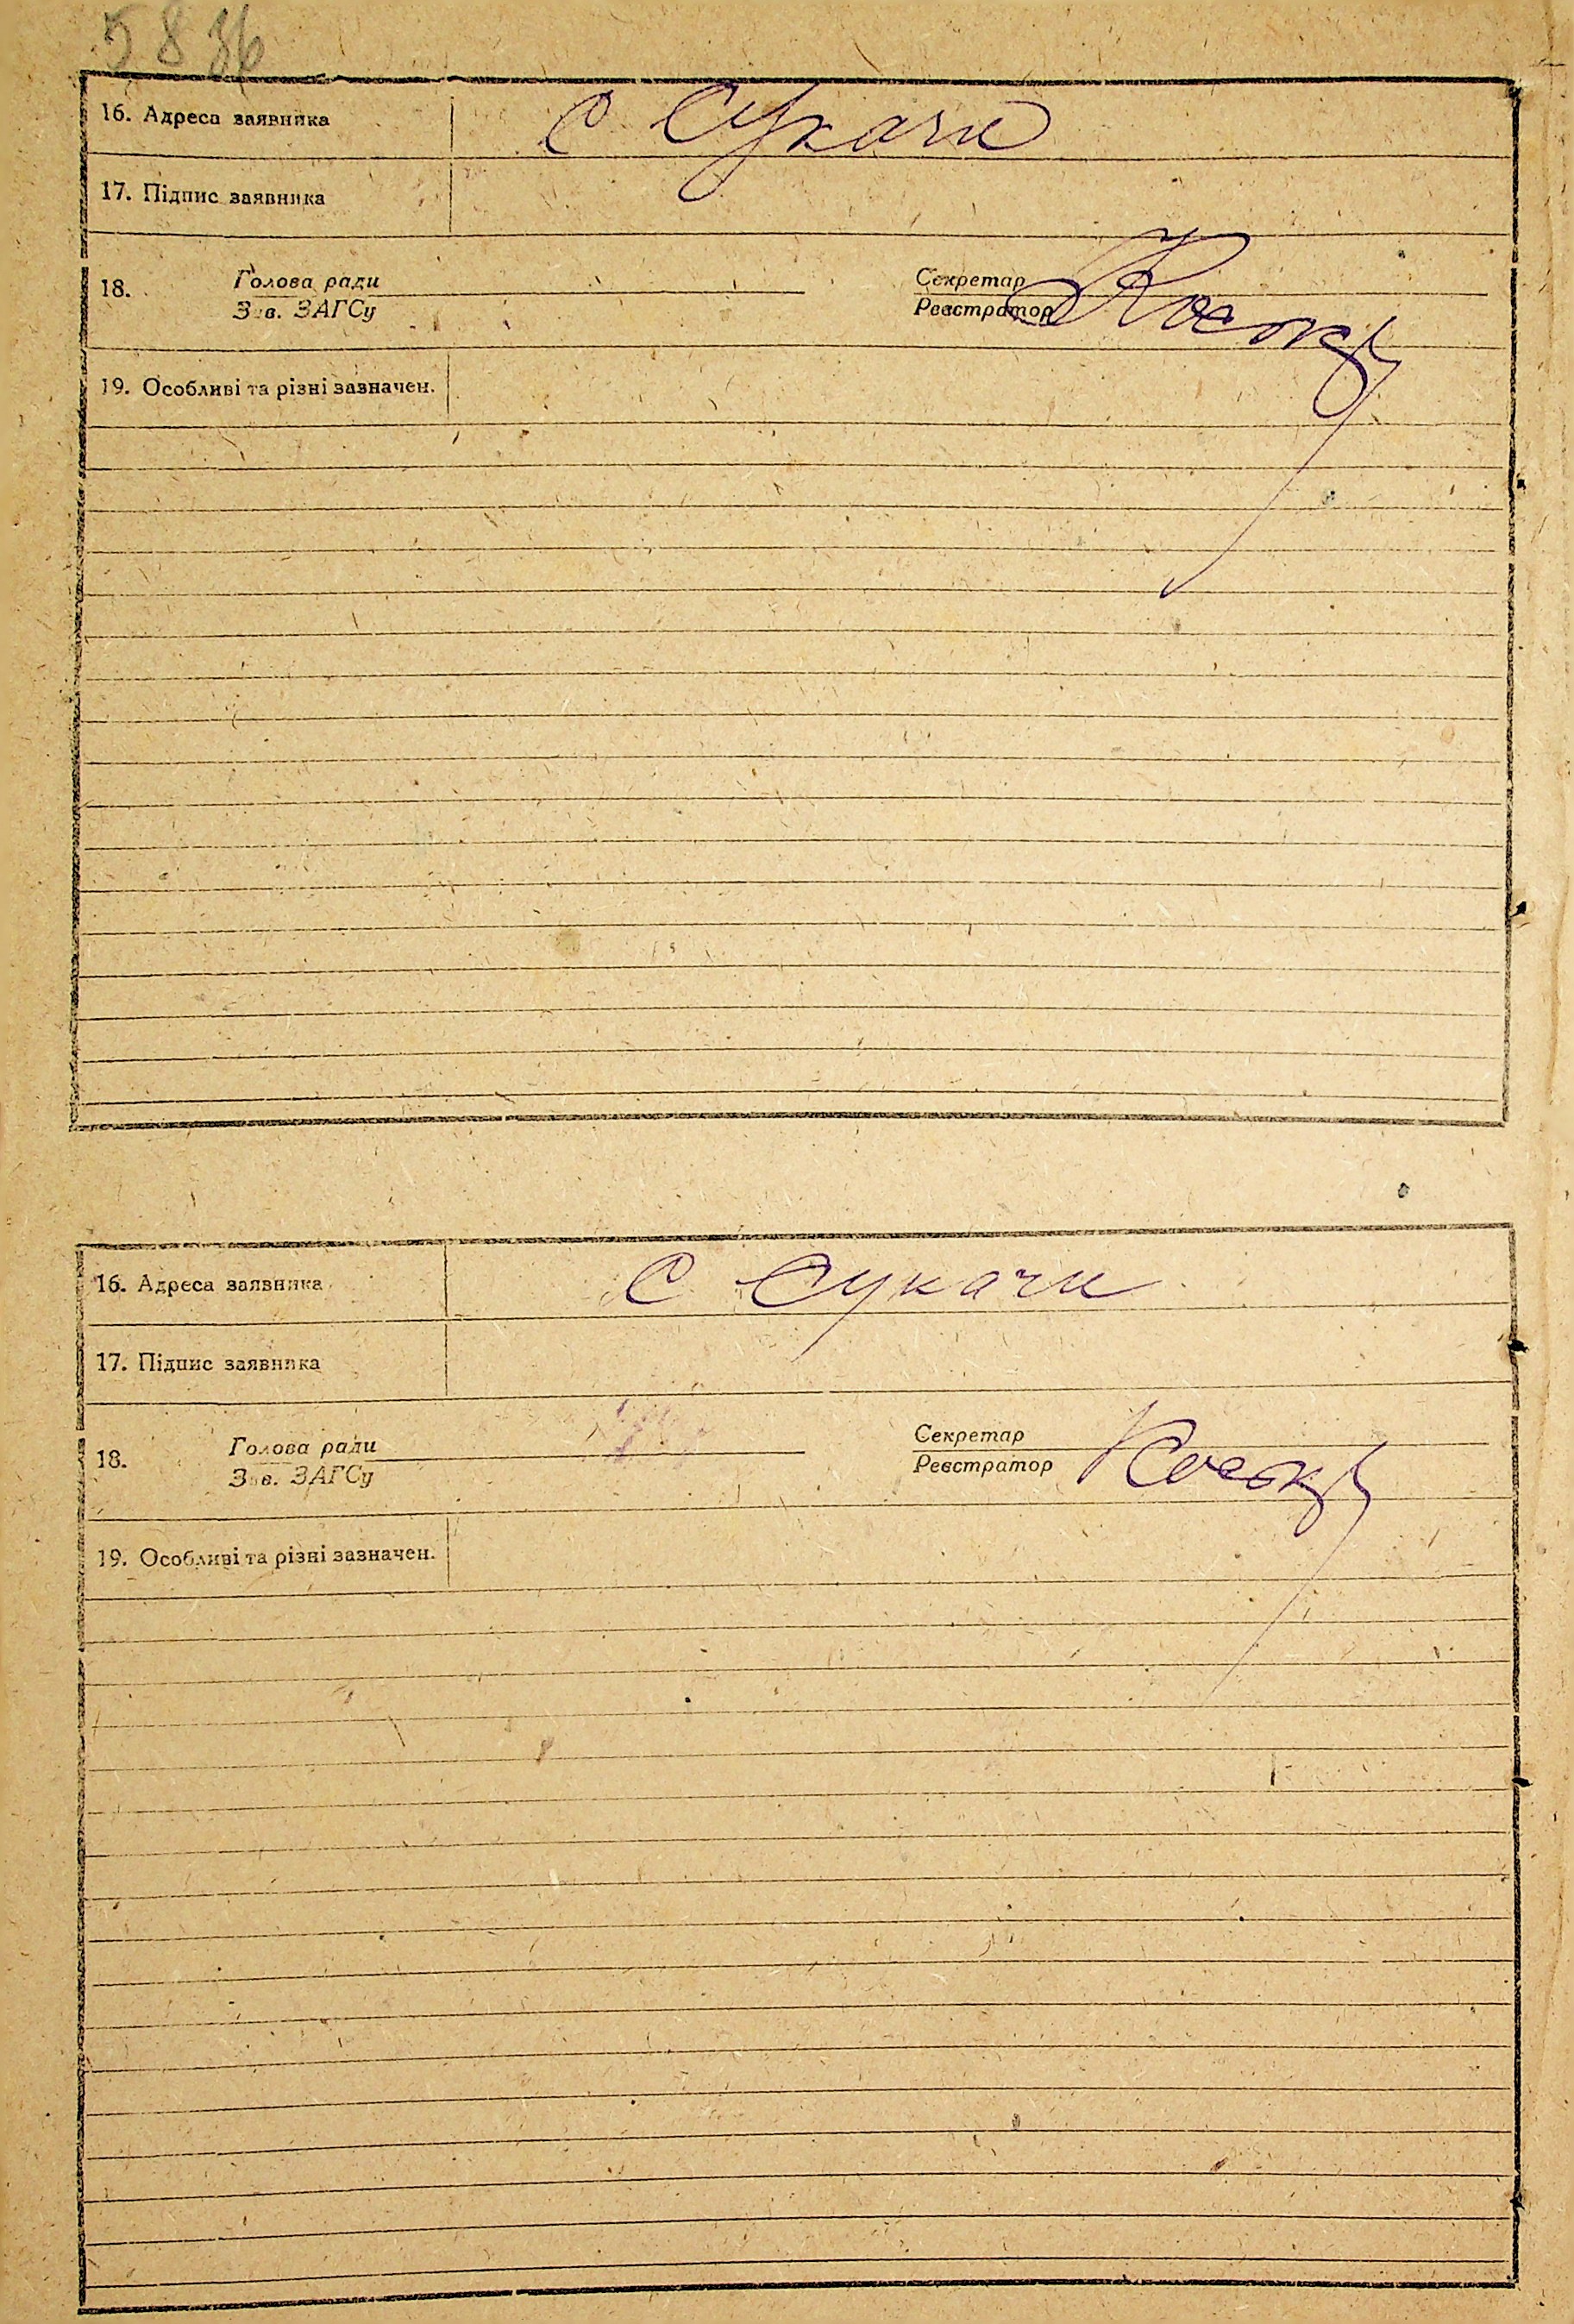 58 36
16. Адреса заявника С Сукачи
17. Підпис заявника
18. Голова ради Секретар
Зав. ЗАГСу Реєстратор
19. Особливі та різні зазначен.
16. Адреса заявника С Сукачи
17. Підпис заявника
18. Голова ради Секретар
Зав. ЗАГСу Реєстратор
19. Особливі та різні зазначен.